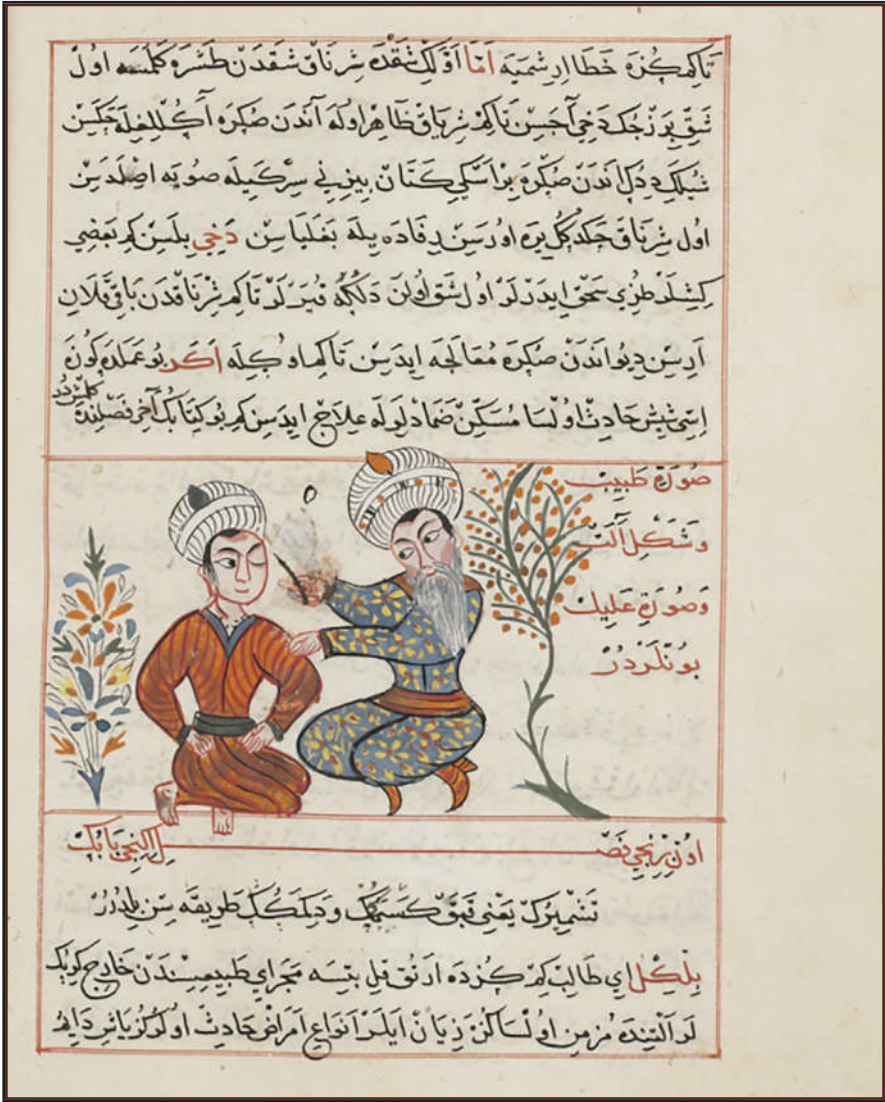 تَاكِه كُزَه خَطَا اِرِشْمَيَه اَمَّا اَوَّلْكِي شَقْدَه شِرْنَاقْ شَقْدَنْ طَشْرَه كَلْمَسَه اول
شَقِّ بِرَزْجُكْ دَخِي آچَسِنْ تَاكِمْ شِرْنَاقْ ظَاهِرْ اولَه آنْدَنْ صُكْرَه چَكَسِنْ
اَنْدَنْ صُكْرَه بِرْ اَسْكِي كَتَانْ بِيزِنِي سِرْكَيْلَه صُويَه اِصْلَدَسِنْ
اول شِرْنَاقْ يِرَه اورَسِنْ رِفَادَه يِلَه بَغْلَيَاسِنْ دَخِي بِلَسِنْ كِمْ بَعْضِي
كِشِيلَرْ طُوزِي سَحْقْ ايدَرْلَرْ اول شَقْ اولَنْ دَلُكَه قُيَرْلَرْ تَاكِمْ شِرْنَاقْدَنْ بَاقِي قَلَانْ
اَرِسِنْ دِيو اَنْدَنْ صُكْرَه مُعَالَجَه ايدَسِنْ تَاكِم اوكِلَه اَكَرْ بو عَمَلْدَه كوزَه
اِسِّي شِيشْ حَادِثْ اولْسَا مُسَكِّنْ ضِمَادْلَرْلَه عِلَاجْ ايدَسِنْ كِمْ بو كِتَابُكْ آخِرْ فَصْلِنْدَه
كَلْمِشْدُرْ
صُورَةِ طَبِيبْ
وَشَكْلِ آلَتْ
وَصُورَةِ عَلِيلْ
بو نْلَرْدُرْ
اونْ بِرِنْجِي فَصْـــلْ اِكِنْجِي بَابُكْ
تَشْمِيرُكْ يَعْنِي قَبَقْ كَسْمَكُكْ وَدِكْمَكُكْ طَرِيقَه سِنْ بِلْدُرُرْ
بِلْكِلْ اي طَالِبْ كِمْ كُزْدَه اَرْتُقْ قِلْ بِتْسَه مَجْرَاي طَبِيعِيسِنْدَنْ خَارِجْ كِرْپِكْـ
لَرْ اَلْتِنْدَه مُزْمِنْ اولْسَا كُزَه زِيَانْ ايلَرْ اَنْوَاعِ اَمْرَاضْ حَادِثْ اولُورْ كُزْ يَاشِ دَايِمْ